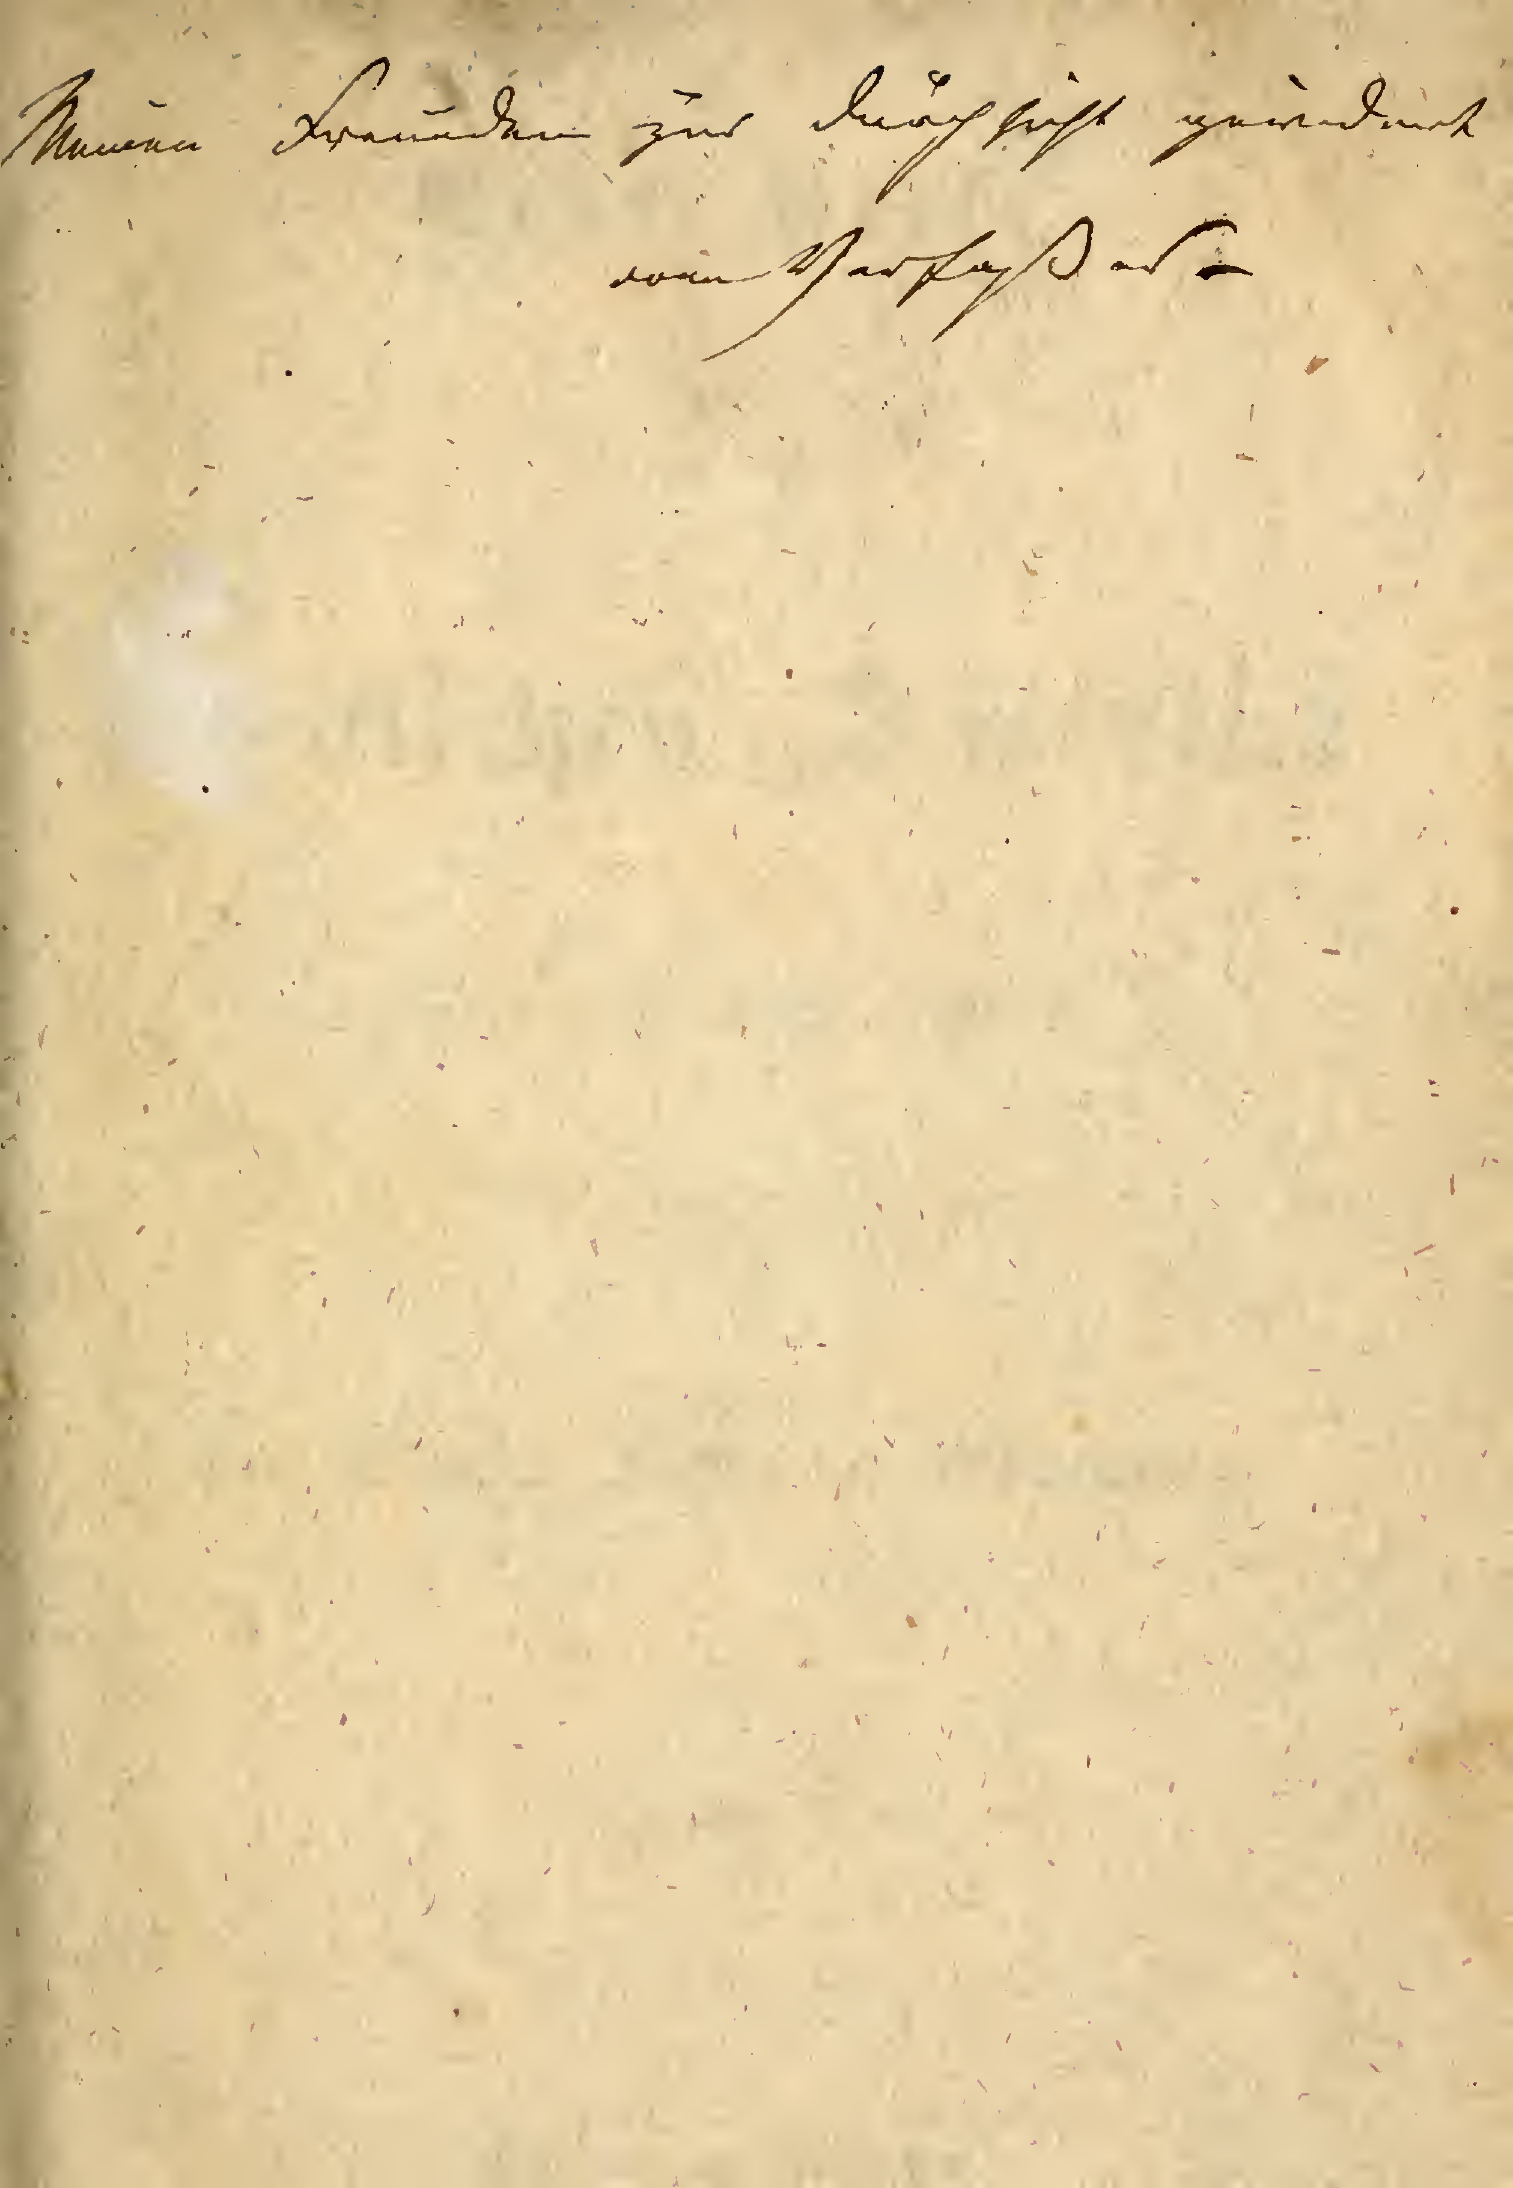 Meinen Freunden zur Durchsicht gewidmet
vom Verfaßer